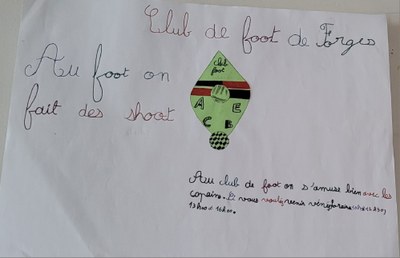 Club de foot de Forges
Au foot on
fait des shoot
club
foot
A E
C B
Au club de foot on s'amuse bien avec les
copains. Si vous voulez venir